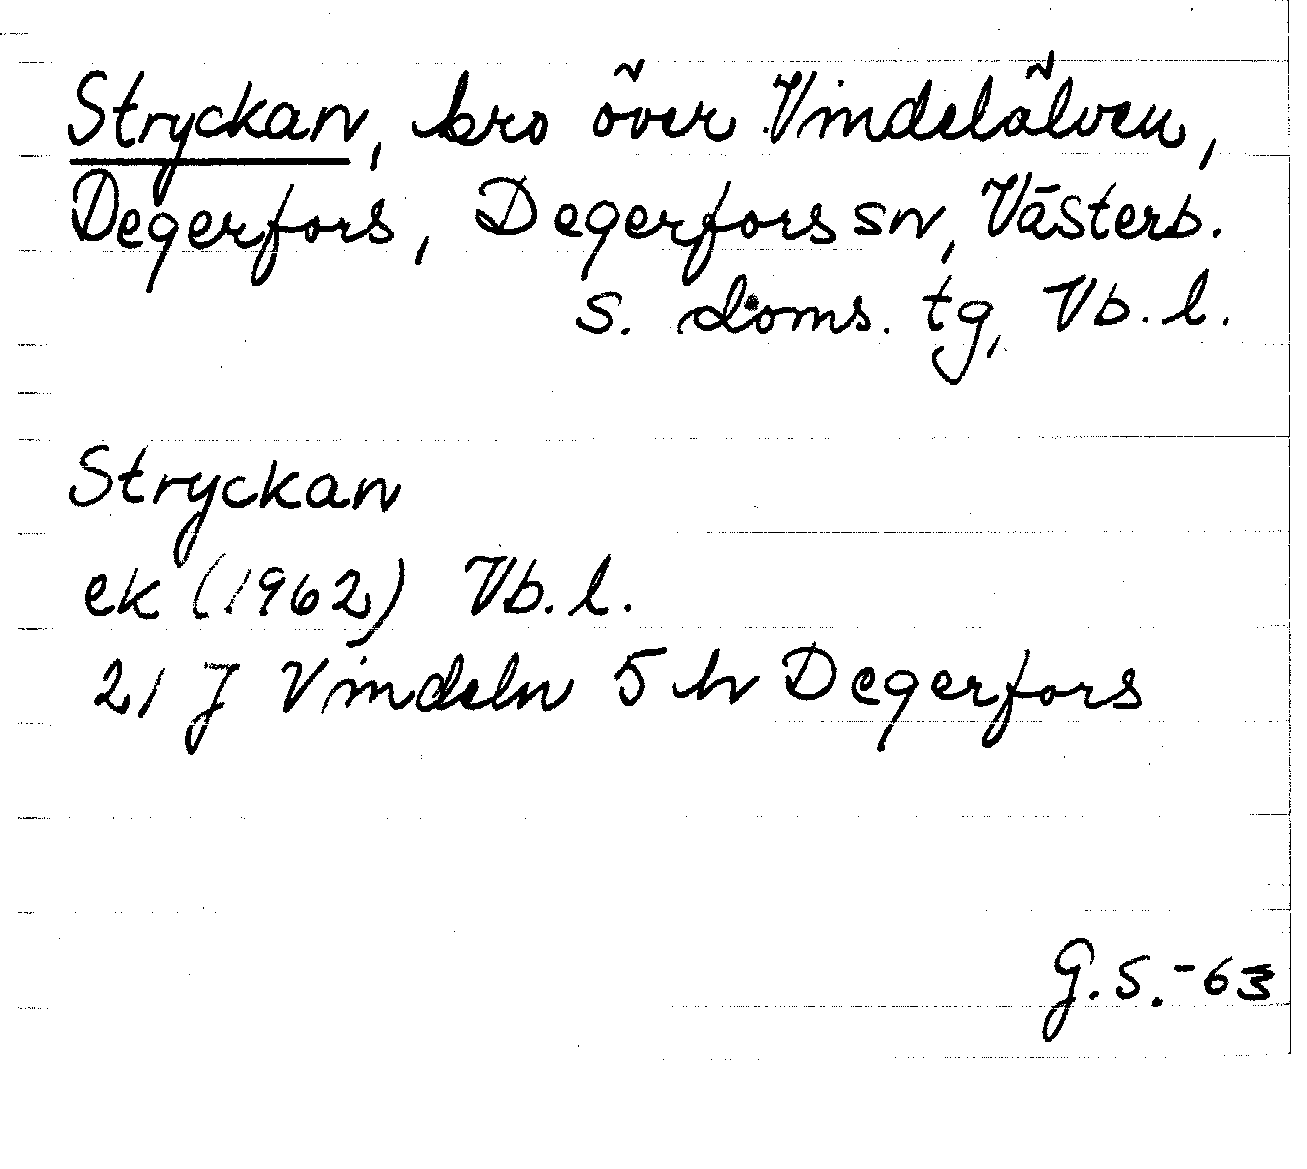 Stryckan, bro över Vindelälven,
Degerfors, Degerfors sn, Västerb.
s. doms. tg, Vb. l.
Stryckan
ek (1962) Vb. l.
21 J Vindeln 5 h Degerfors
G.S.-63